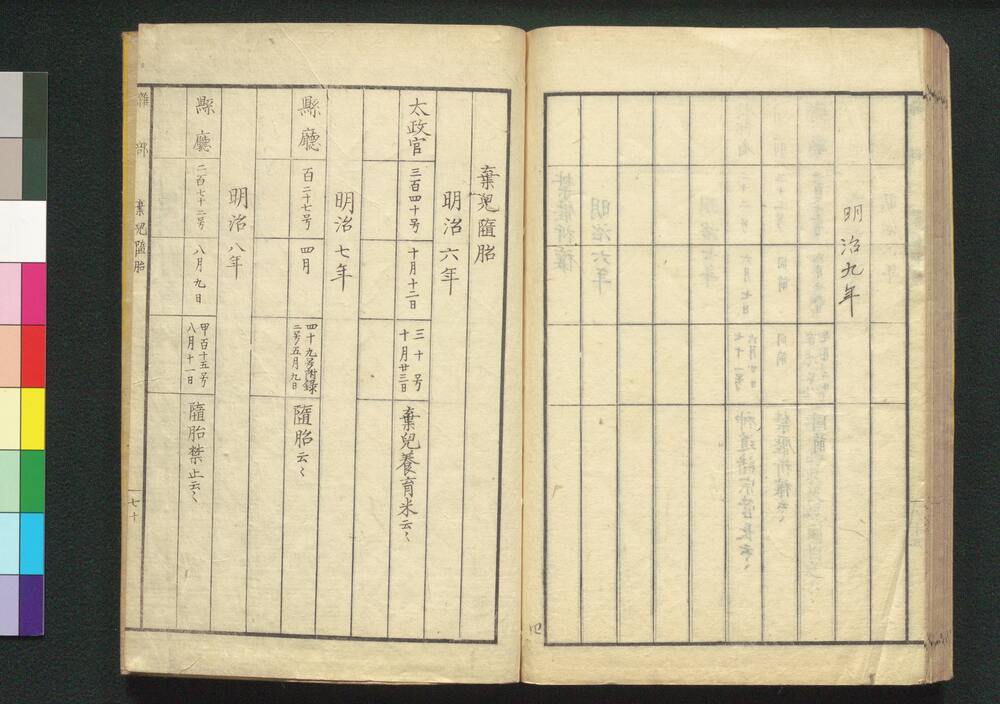 明治九年
棄児隨胎
明治六年
太政官 三百四十号 十月十二日 三十号 十月廿三日 棄児養育米云〻
明治七年
縣廳 百二十七号 四月 四十九号附録 二号五月九日 隨胎云〻
明治八年
縣廳 二百七十二号 八月九日 甲百十五号 八月十一日 隨胎禁止云〻
雜部 棄児隨胎 七十